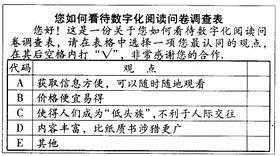 您如何看待数字化阅读问卷调查表
您好!这是一份关于您如何看待数字化阅读问
卷调查表,请在表格中选择一项您最认同的观点,
在其后空格内打“√”,非常感谢您的合作。
代码 观点
A 获取信息方便,可以随时随地观看
B 价格便宜易得
C 使得人们成为“低头族”,不利于人际交往
D 内容丰富,比纸质书涉猎更广
E 其他